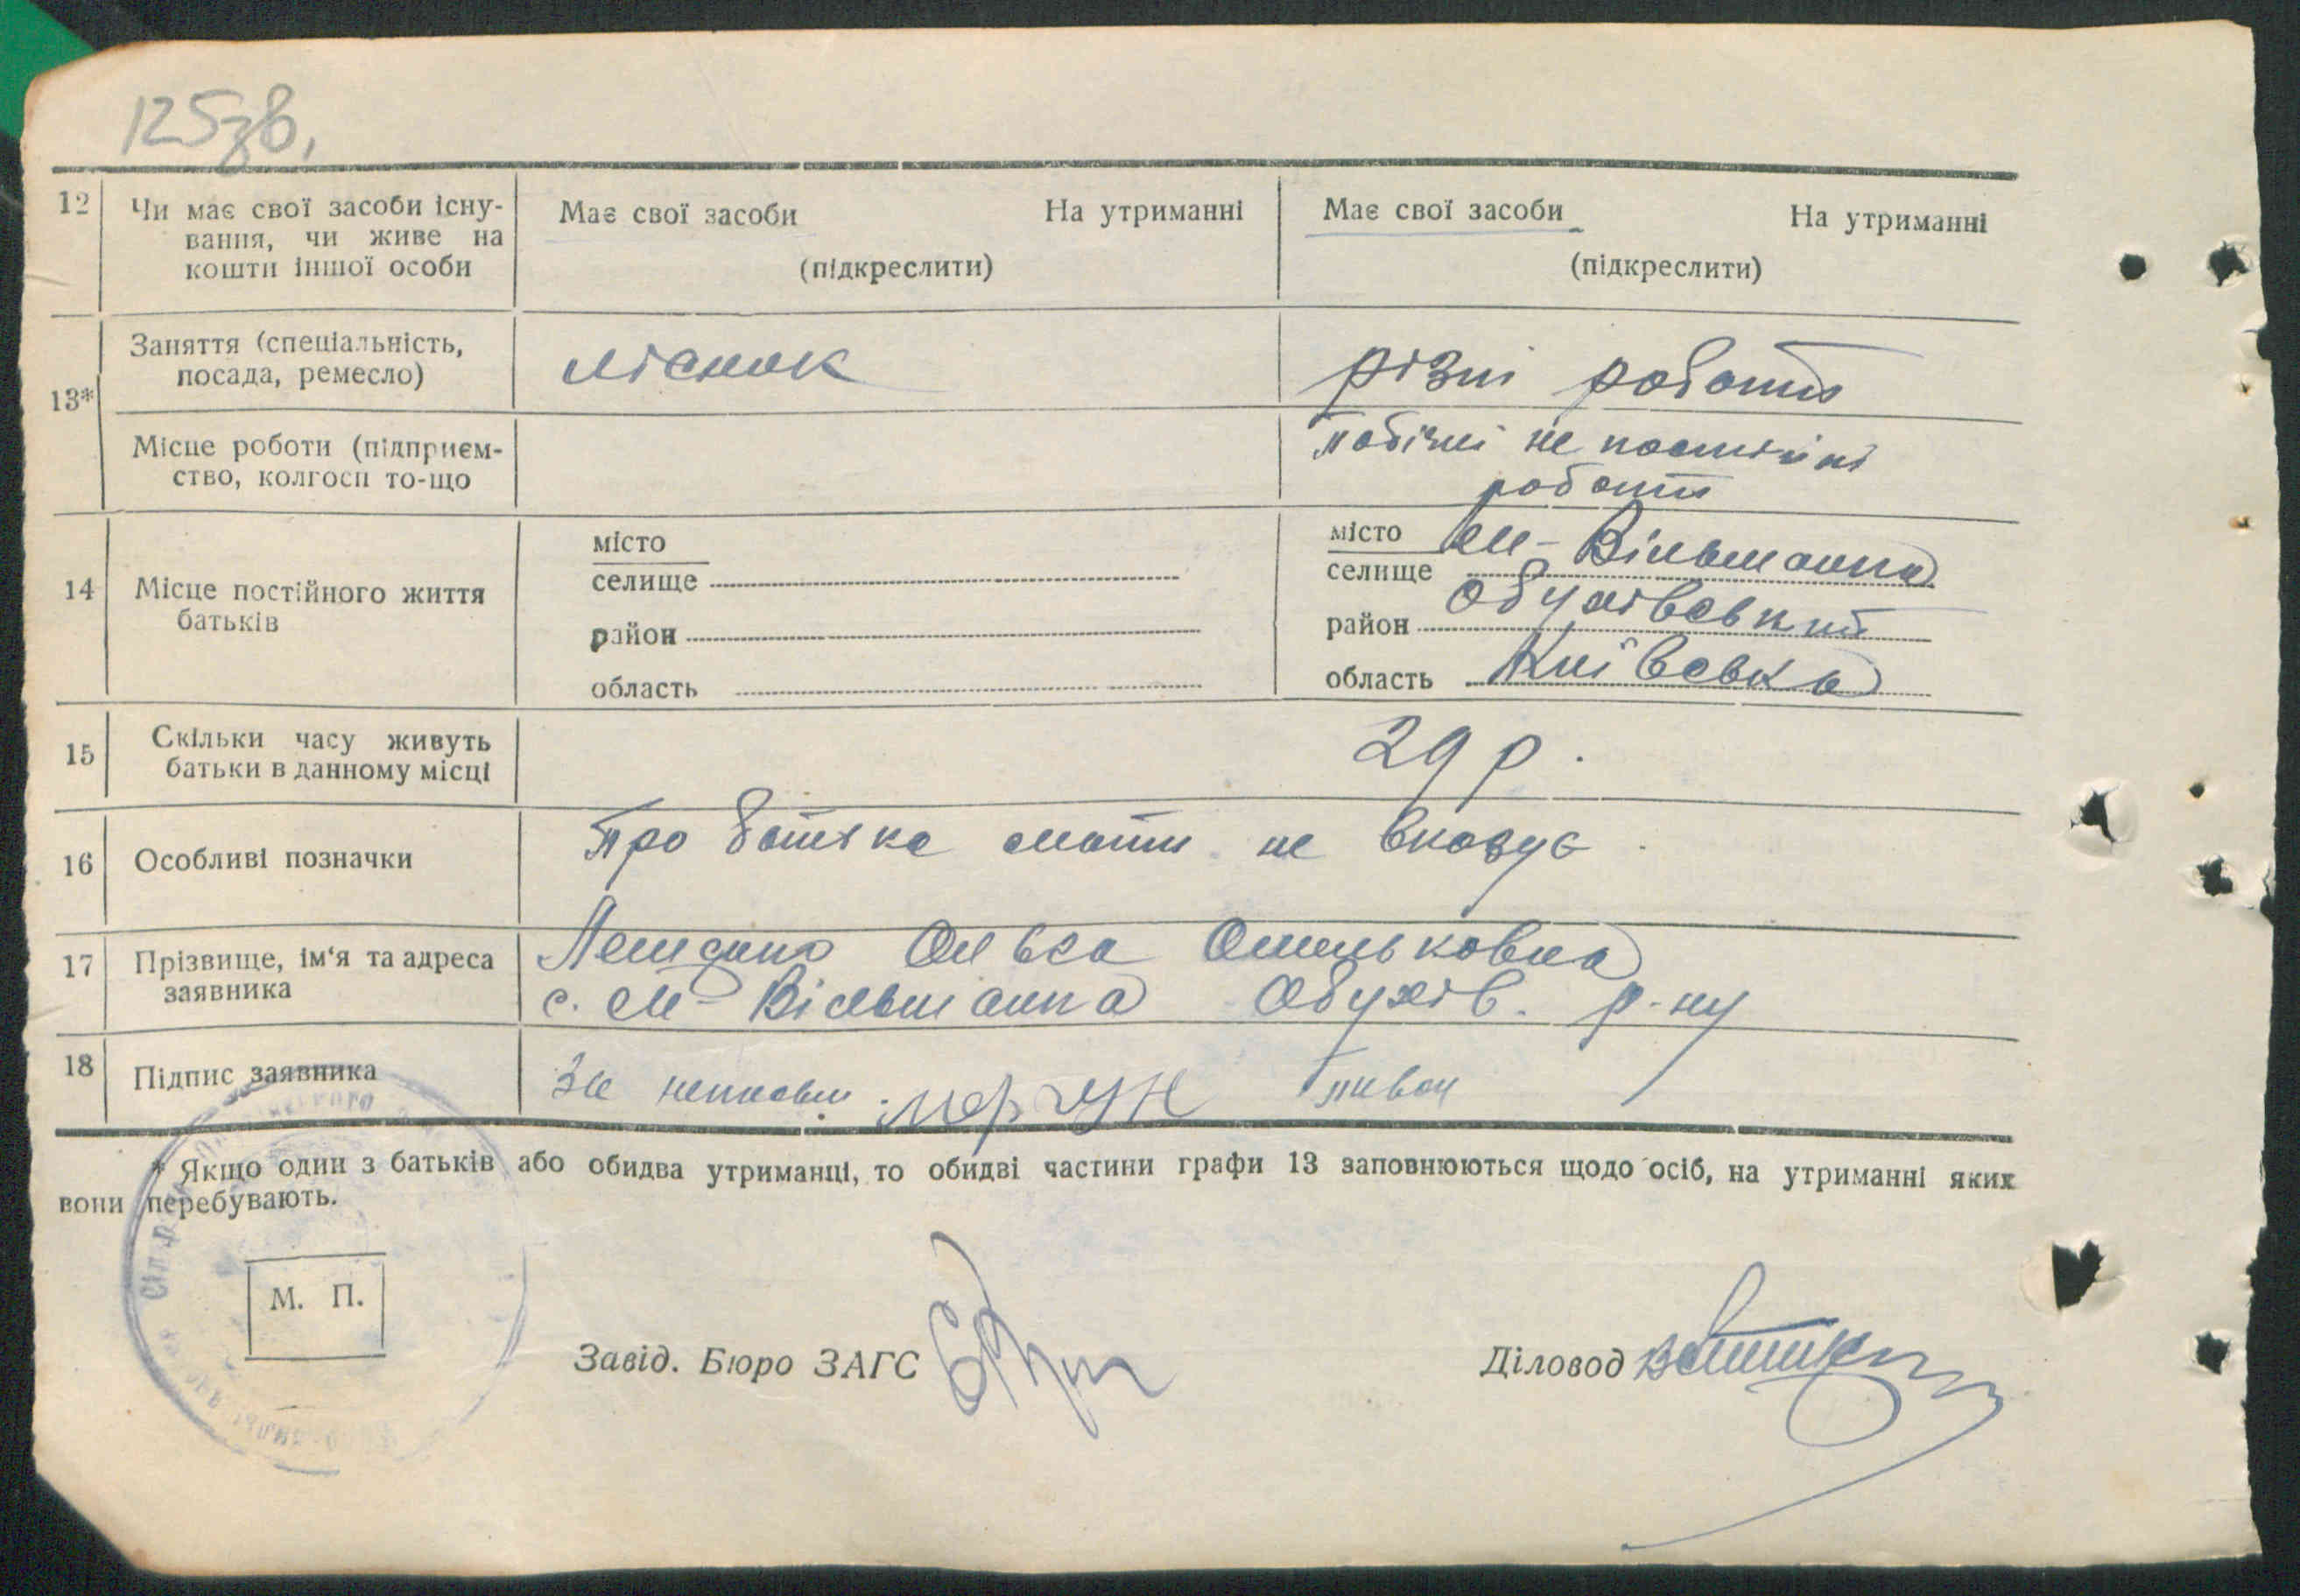 125зв.
12 Чи має свої засоби існу- Має свої засоби На утриманні Має свої засоби На утриманні
вання, чи живе на
кошти іншої особи (підкреслити) (підкреслити)
13* Заняття (спеціальність, лісник різні роботи
посада, ремесло)
Місце роботи (підприєм- побічні не постійні
ство, колгосп то-що роботи
14 Місце постійного життя
батьків
місто
селище
район
область
місто М-Вільшанка
селище
район Обухівський
область Київська
15 Скільки часу живуть 29 р.
батьки в данному місці
16 Особливі позначки Про батька мати не вказує
17 Прізвище, ім'я та адреса Ольга Омельковна
заявника с. М-Вільшанка Обухів. р-ну
18 Підпис заявника За неписьм.
* Якщо один з батьків або обидва утриманці, то обидві частини графи 13 заповнюються щодо осіб, на утриманні яких
вони перебувають.
М. П.
Завід. Бюро ЗАГС
Діловод